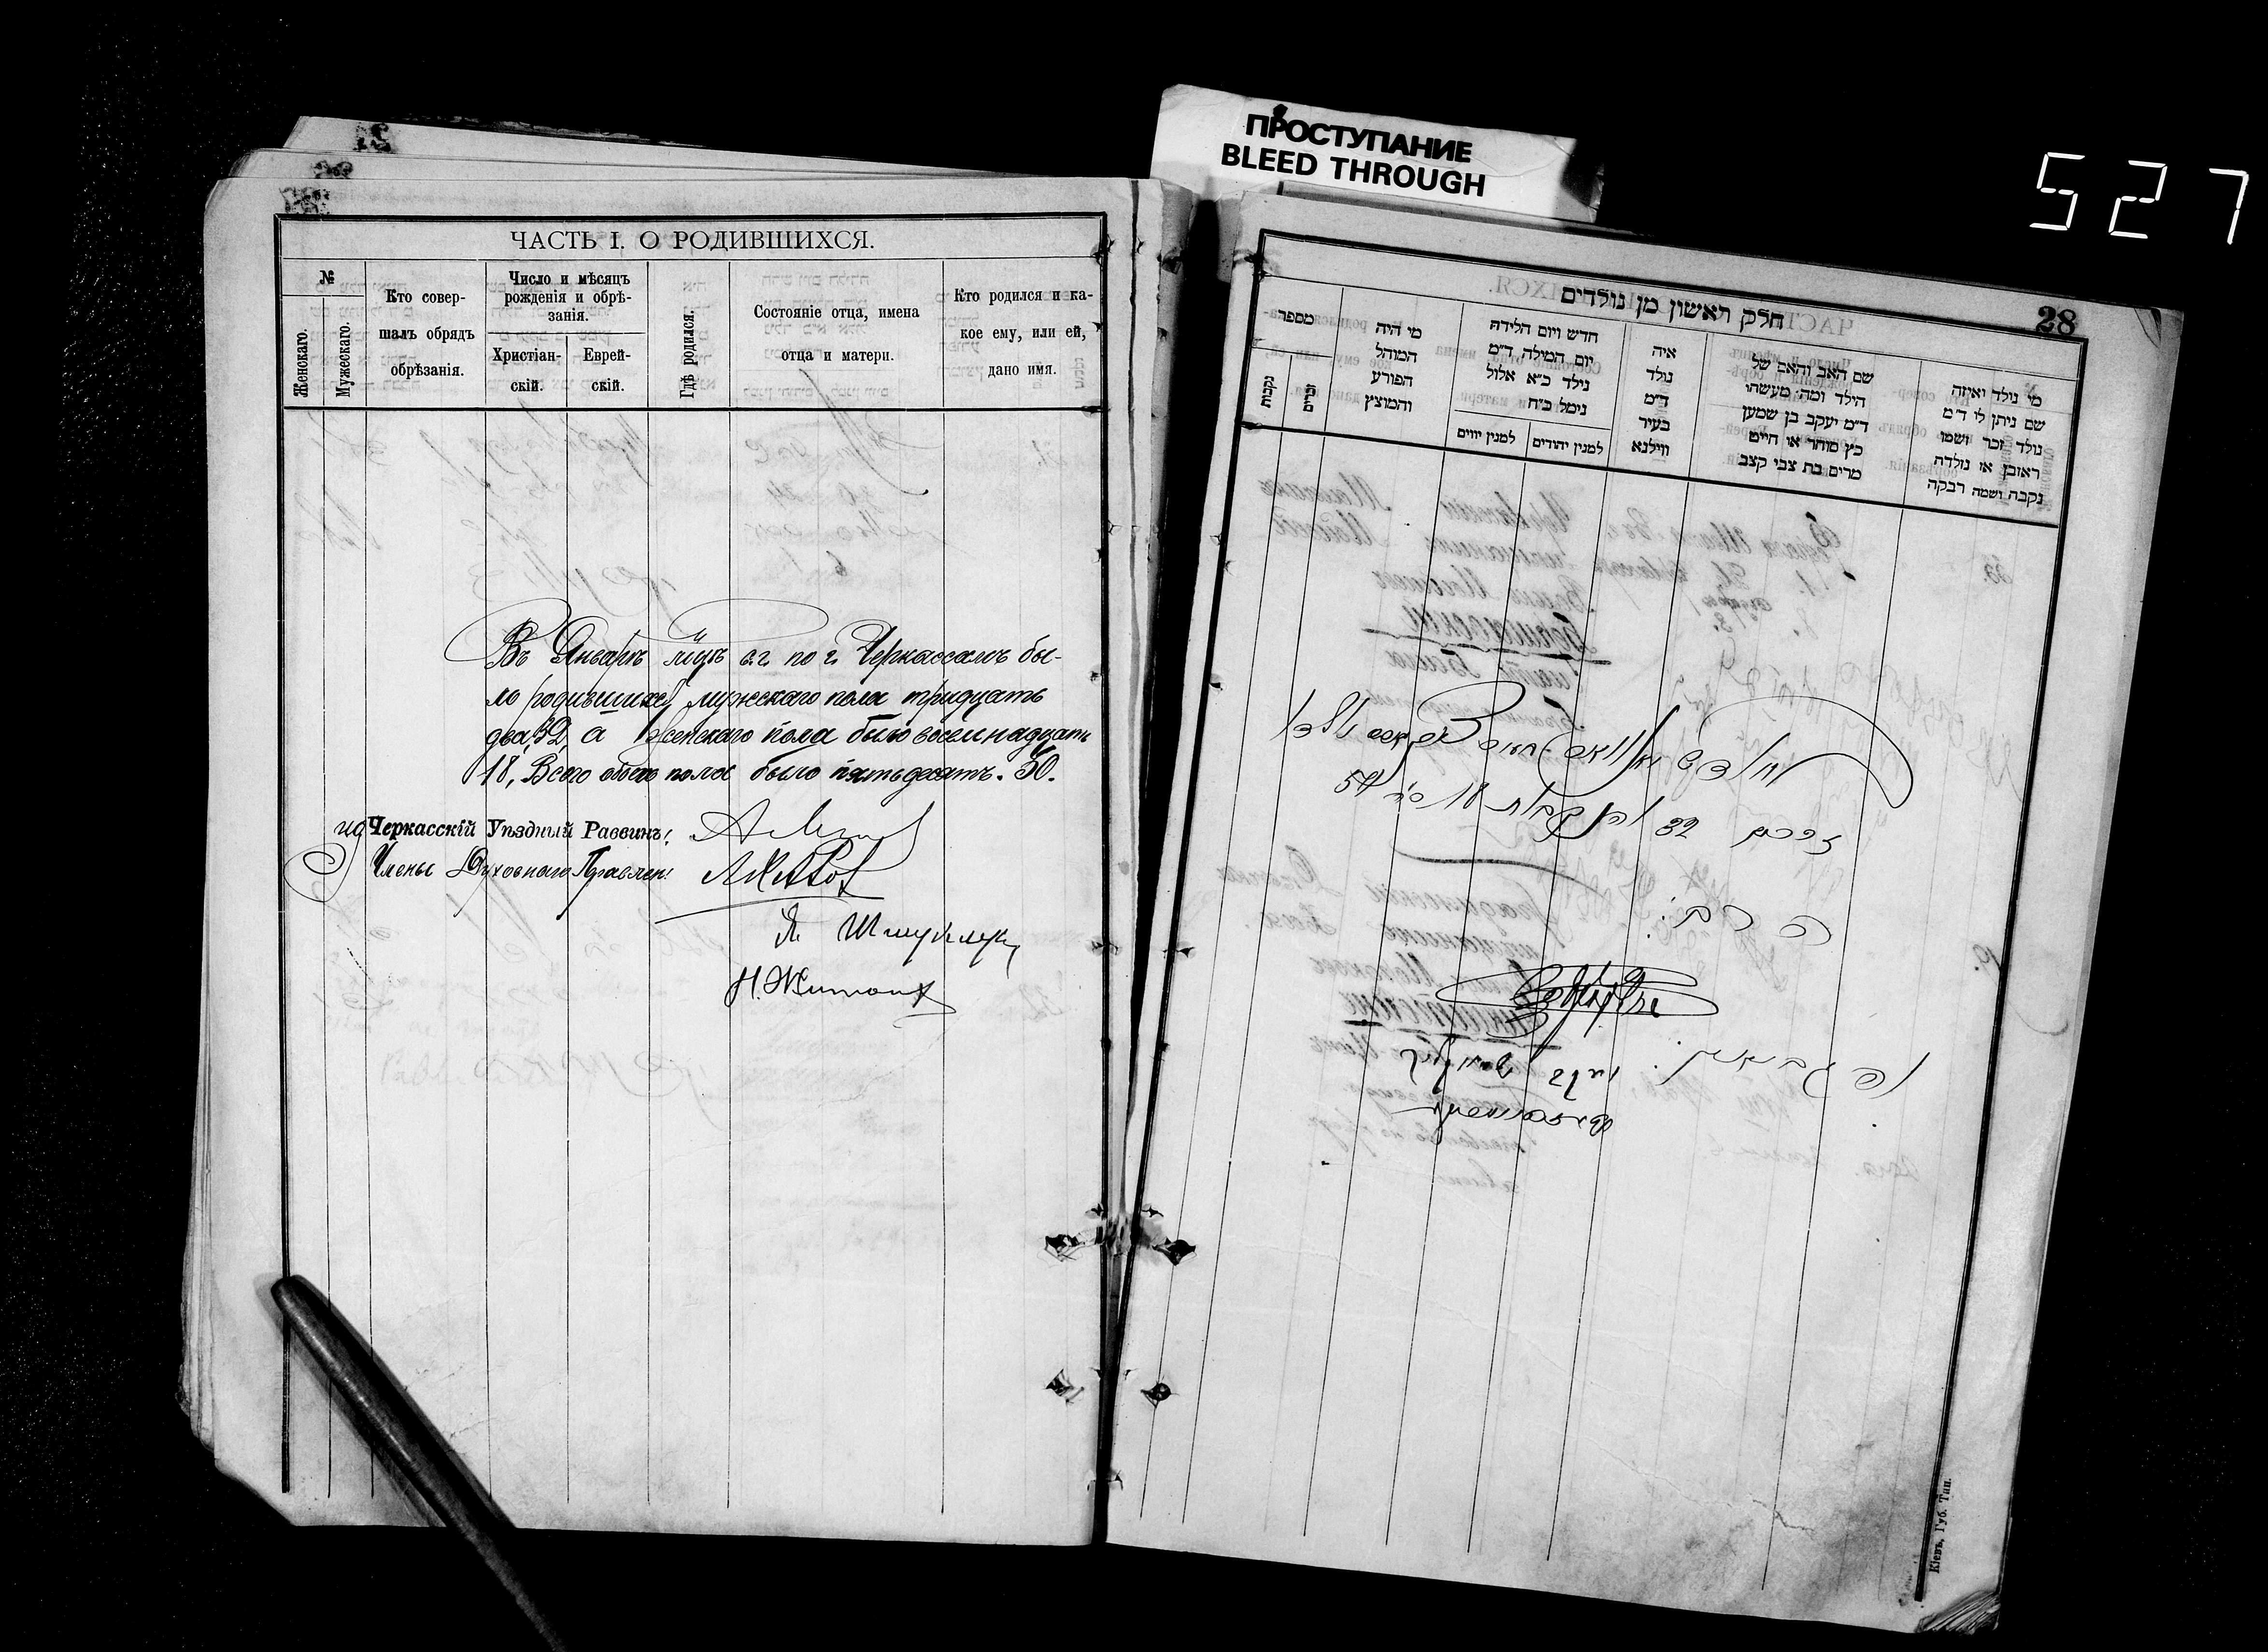 ПРОСТУПАНИЕ
BLEED THROUGH
527
ЧАСТЬ I. О РОДИВШИХСЯ.
№
Женскаго.
Мужескаго.
Кто совер-
шалъ обрядъ
обрѣзанія.
Число и мѣсяцъ
рожденія и обрѣ-
занія.
Христіан-
скій.
Еврей-
скій.
Гдѣ родился.
Состояніе отца, имена
отца и матери.
Кто родился и ка-
кое ему, или ей,
дано имя.
Въ Январѣ м-цѣ с.г. по г. Черкассамъ бы-
ло родившихся мужескаго пола тридцать
два, 32, а женскаго пола было восемнадцать
18, Всего обоего пола было пятьдесятъ. 50.
Черкасскій Уѣздный Раввинъ:
Члены Духовнаго Правлен:
28
חלק ראשון מן נולדים
מספר
נקבות
זכרים
מי היה
המוהל
הפורע
והמוצץ
חדש ויום הלידה
יום המילה ד״מ
נולד כ״א אלול
נימל כ״ח
למנין יהודים
למנין יוונים
איה
נולד
ד״מ
בעיר
ווילנא
שם האב והאם של
הילד ומה מעשהו
ד״מ יעקב בן שמעון
כץ סוחר או חייט
מרים בת צבי קצב
מי נולד ואיזה
שם ניתן לו ד״מ
נולד זכר ושמו
ראובן או נולדה
נקבה ושמה רבקה
זכרים 32 נקבות 18 ס״ה 50
הרב:
Кіевъ, Губ. Тип.